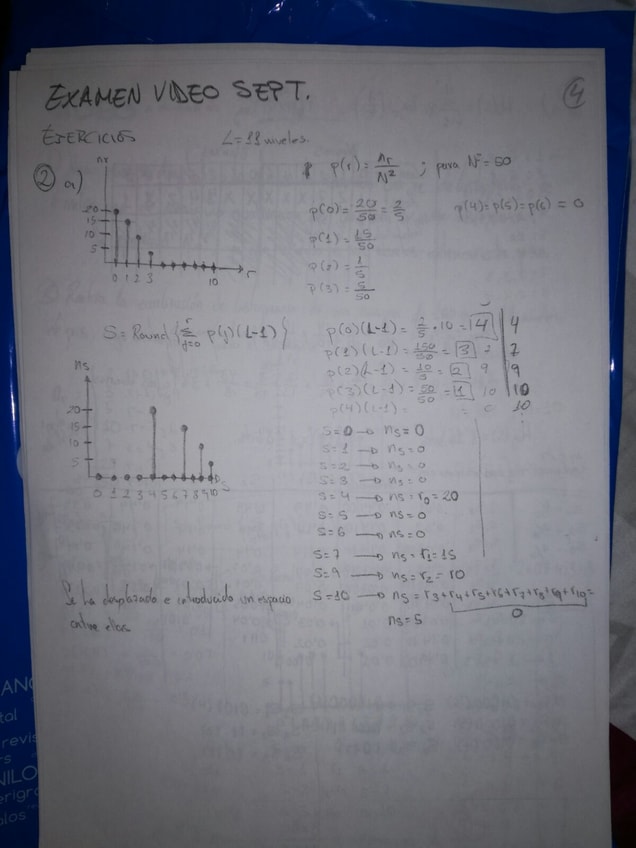 EXAMEN VIDEO SEPT.
4
EJERCICIOS
L=11 niveles.
2 a)
nr
20
15
10
5
0 1 2 3 10 r
p(r) = nr/N² ; para N²=50
p(0)= 20/50 = 2/5
p(4)=p(5)=p(6) = 0
p(1)= 15/50
p(2)= 1/5
p(3)= 5/50
S= Round { Σ j=0 r p(j)(L-1) }
p(0)(L-1) = 2/5 · 10 = 4 4
p(1)(L-1) = 150/50 = 3 7 7
p(2)(L-1) = 10/5 = 2 9 9
p(3)(L-1) = 50/50 = 1 10 10
p(4)(L-1) = 0 10
ns
20
15
10
5
0 1 2 3 4 5 6 7 8 9 10 S
S=0 → ns = 0
S=1 → ns=0
S=2 → ns=0
S=3 → ns=0
S=4 → ns= r0 = 20
S=5 → ns=0
S=6 → ns=0
S=7 → ns=r1=15
S=9 → ns=r2=10
S=10 → ns= r3+r4+r5+r6+r7+r8+r9+r10=
0
ns=5
Se ha desplazado e introducido un espacio
entre ellos